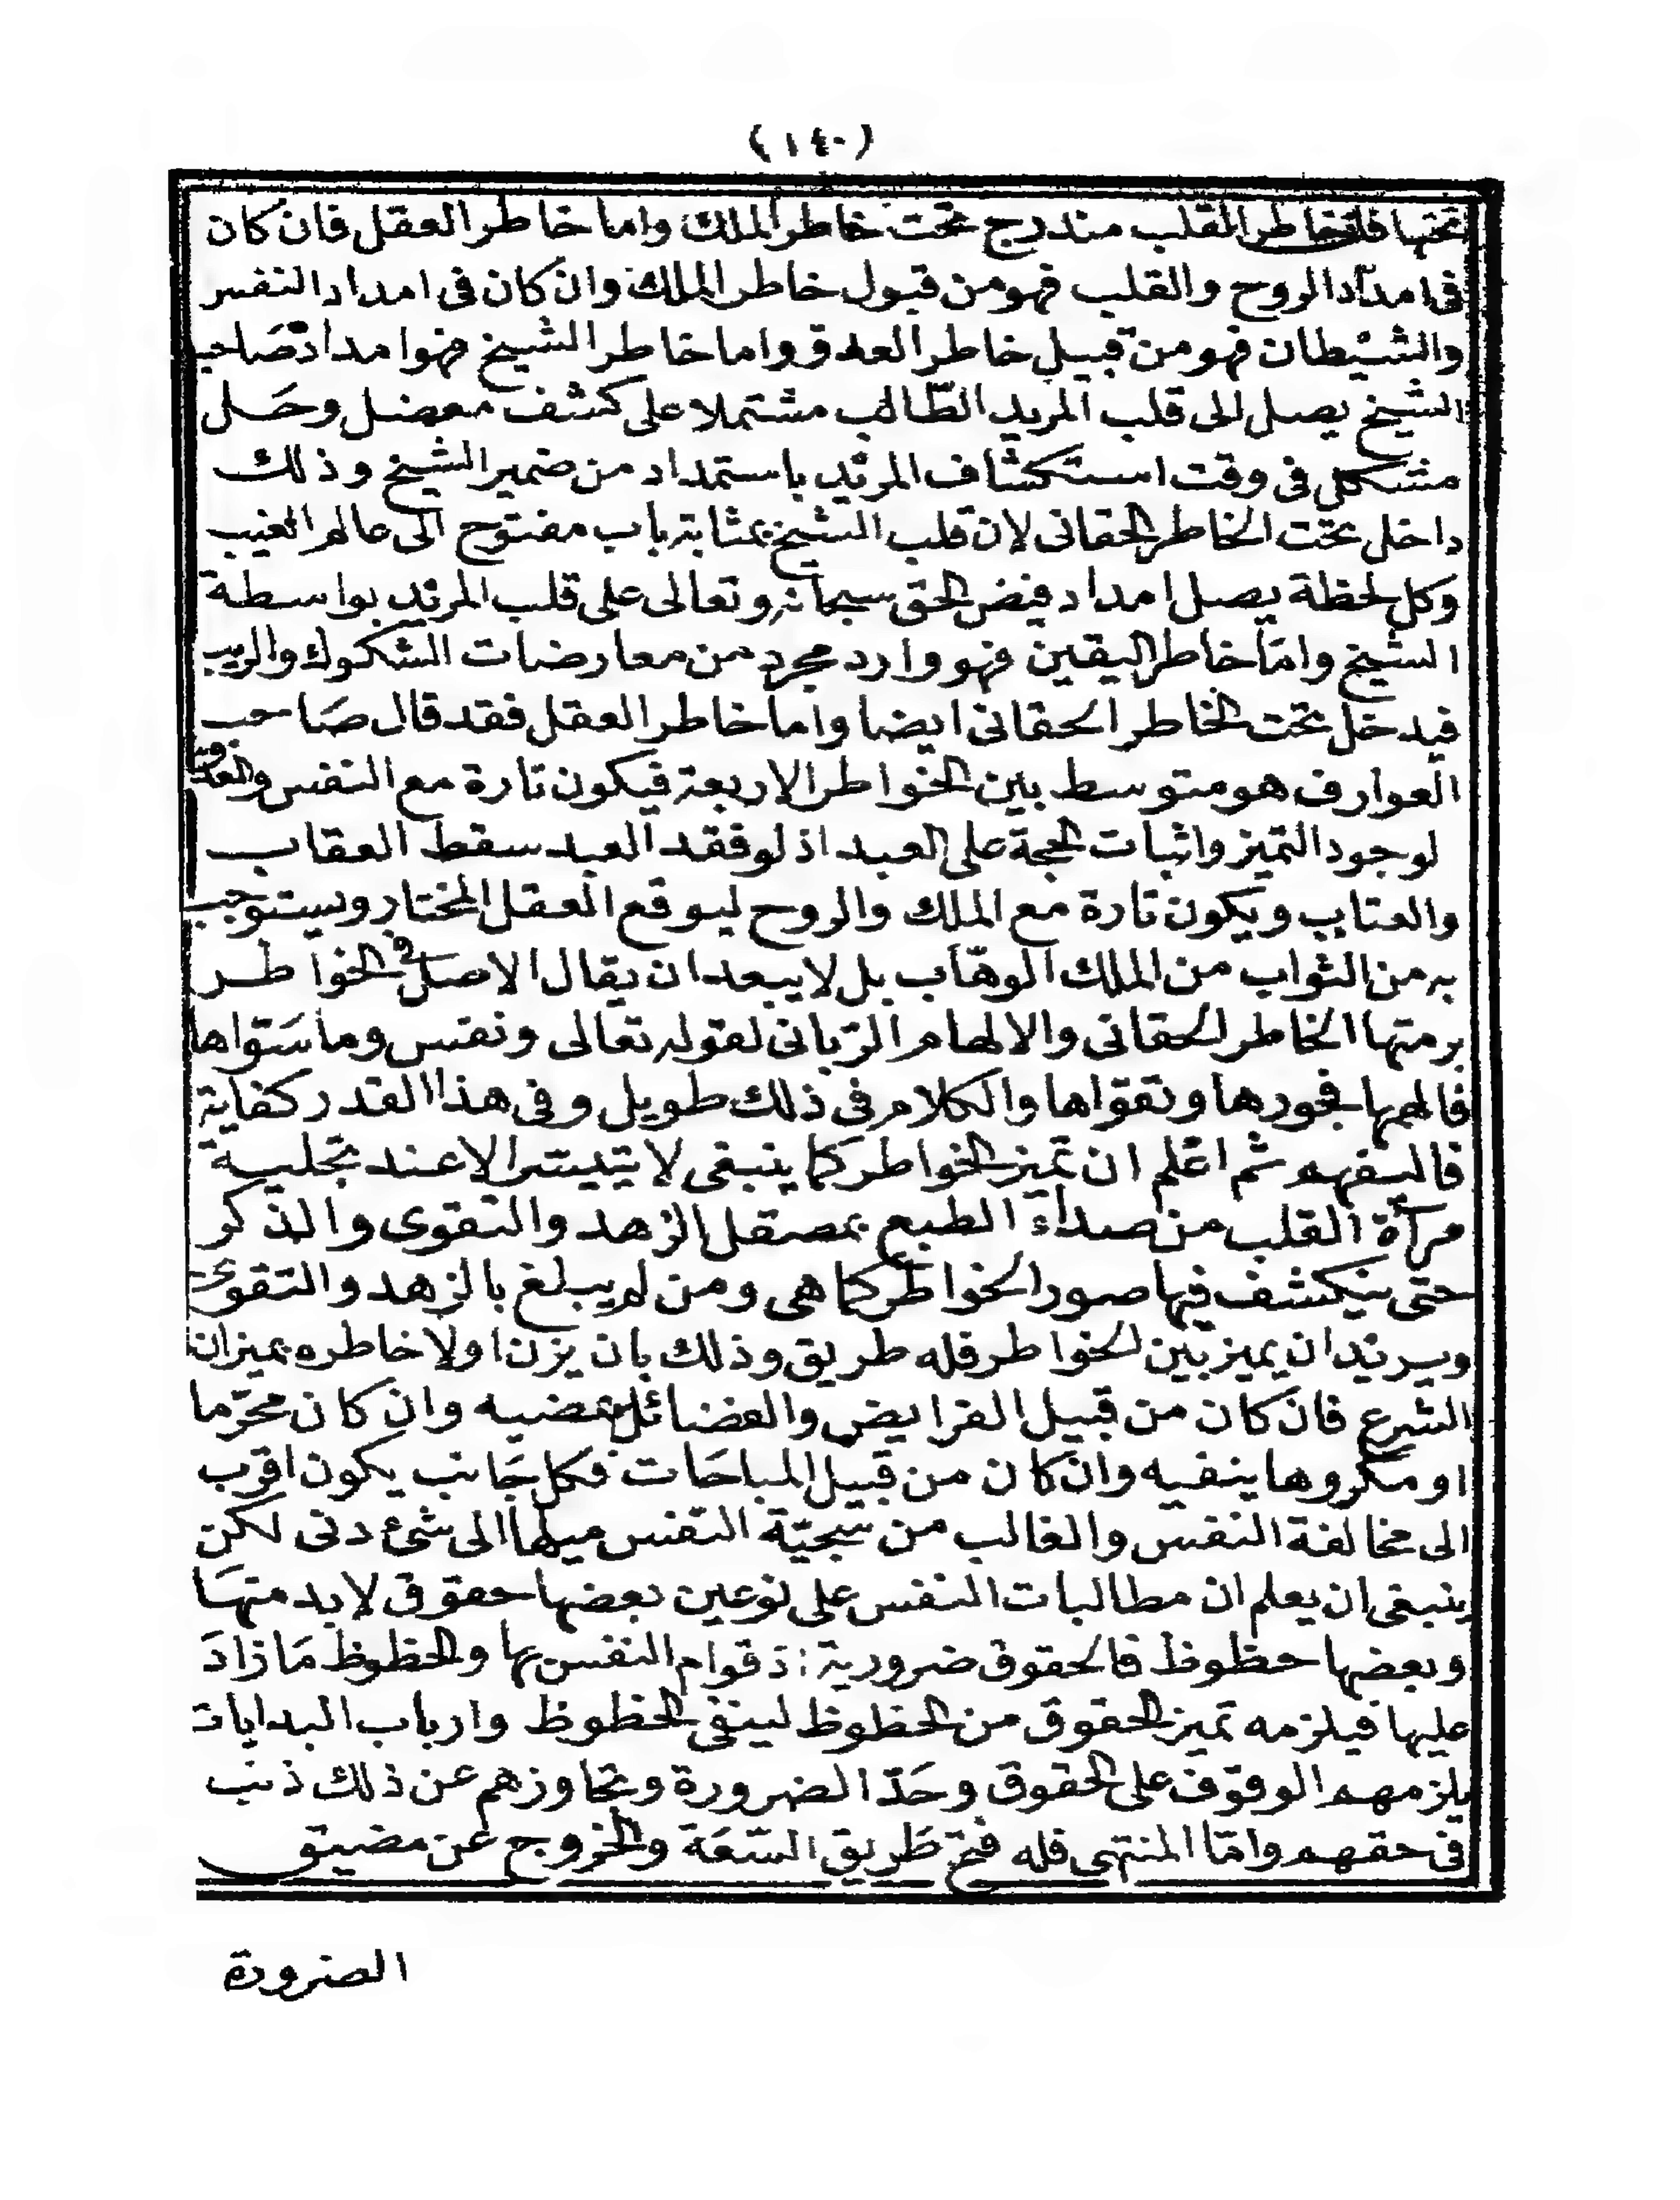 (١٤٠)
تحتها فان خاطر القلب مندرج تحت خاطر الملك واما خاطر العقل فان كان
فى امداد الروح والقلب فهو من قبول خاطر الملك وان كان فى امداد النفس
والشيطان فهو من قبيل خاطر العدو واما خاطر الشيخ فهو امداد صاحب
الشيخ يصل الى قلب المريد الطّالب مشتملا على كشف معضل وحل
مشكل فى وقت استكشاف المريد باستمداد من ضمير الشيخ وذلك
داخل تحت الخاطر الحقانى لان قلب الشيخ بمثابة باب مفتوح الى عالم الغيب
وكل لحظة يصل امداد فيض الحق سبحانه وتعالى على قلب المريد بواسطة
الشيخ وامّا خاطر اليقين فهو وارد مجرد من معارضات الشكوك والريب
فيدخل تحت الخاطر الحقانى ايضا واما خاطر العقل فقد قال صَاحب
العوارف هو متوسط بين الخواطر الاربعة فيكون تارة مع النفس والعدوّ
لوجود التميز واثبات الحجة على العبد اذ لو فقد العبد سقط العقاب
والعتاب ويكون تارة مع الملك والروح ليوقع العقل المختار ويستوجب
به من الثواب من الملك الوهّاب بل لا يبعد ان يقال الاصل فى الخواطر
برمتها الخاطر الحقانى والالهام الرّبانى لقوله تعالى ونفس وما سَوّاها
فالهمها فجورها وتقواها والكلام فى ذلك طويل وفى هذا القدر كفاية
فاليفهم ثم اعْلم ان تميز الخواطر كما ينبغى لا يتيسّر الا عند تجلية
مرآة القلب من صداء الطبع بمصقل الزهد والتقوى والذكر
حتى ينكشف فيها صور الخواطر كما هى ومن لم يبلغ بالزهد والتقوى
ويريد ان يميز بين الخواطر فله طريق وذلك بان يزن اولا خاطره بميزان
الشرع فان كان من قبيل الفرايض والفضائل يمضيه وان كان محرّما
او مكروها ينفيه وان كان من قبيل المباحَات فكل جَانب يكون اقرب
الى مخالفة النفس والغالب من سجيّة النفس ميلها الى شئ دنى لكن
ينبغى ان يعلم ان مطالبات النفس على نوعين بعضها حقوق لابد منهَا
وبعضها حظوظ فالحقوق ضرورية اذ قوام النفس بها والحظوظ مَا زادَ
عليها فيلزمه تميز الحقوق من الحظوظ لينفى الحظوظ وارباب البدايات
يلزمهم الوقوف على الحقوق وحَدّ الضرورة وتجاوزهم عن ذلك ذنب
فى حقهم وامّا المنتهى فله فتح طَريق السّعَة والخروج عن مضيق
الضرورة